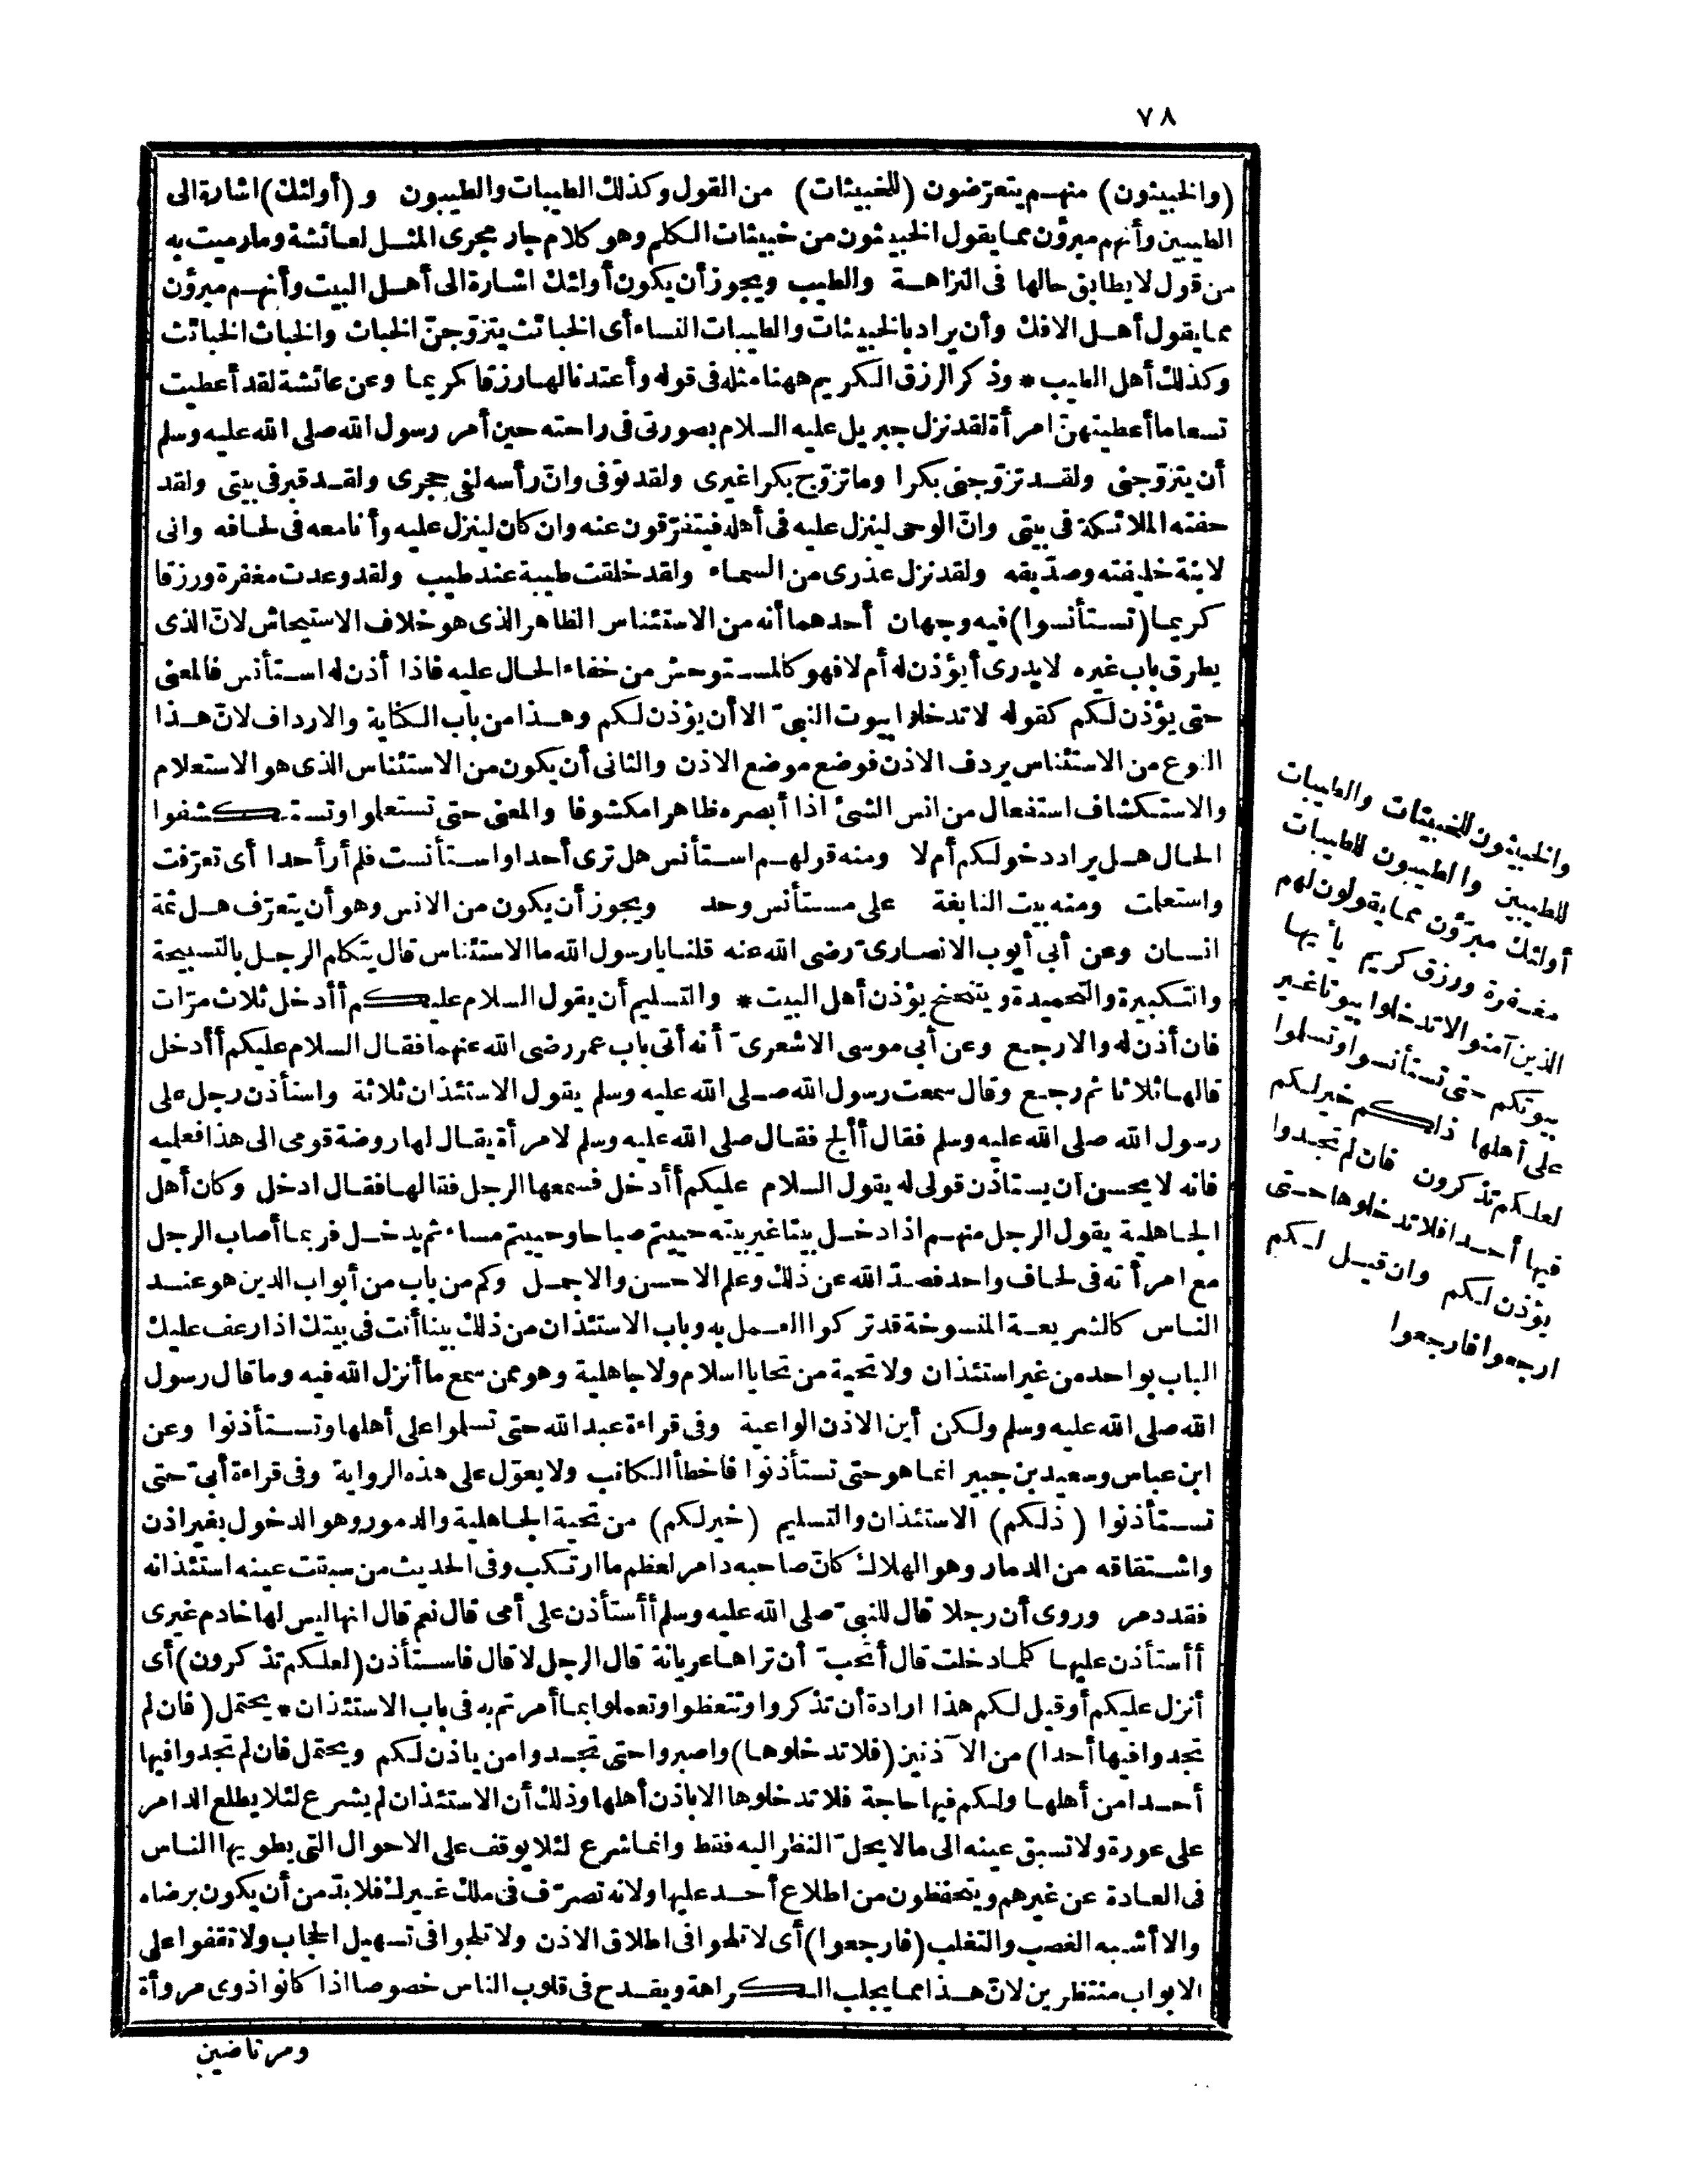 ٧٨
(والخبيثون) منهم يتعرّضون (للخبيثات) من القول وكذلك الطيبات والطيبون و (أولئك) اشارة الى
الطيبين وأنهم مبرؤن مما يقول الخبيثون من خبيثات الكلم وهو كلام جار مجرى المثل لعائشة وما رميت به
من قول لا يطابق حالها فى النزاهة والطيب ويجوز أن يكون أولئك اشارة الى أهل البيت وأنهم مبرؤن
مما يقول أهل الافك وأن يراد بالخبيثات والطيبات النساء أى الخبائث يتزوّجن الخباث والخباث الخبائث
وكذلك أهل الطيب * وذكر الرزق الكريم ههنا مثله فى قوله وأعتدنا لها رزقا كريما وعن عائشة لقد أعطيت
تسعا ما أعطيتهنّ امرأة لقد نزل جبريل عليه السلام بصورتى فى راحته حين أمر رسول الله صلى الله عليه وسلم
أن يتزوّجنى ولقد تزوّجنى بكرا وما تزوّج بكرا غيرى ولقد توفى وانّ رأسه لفى حجرى ولقد قبر فى بيتى ولقد
حفته الملائكة فى بيتى وانّ الوحى لينزل عليه فى أهله فيتفرّقون عنه وان كان لينزل عليه وأنا معه فى لحافه وانى
لابنة خليفته وصدّيقه ولقد نزل عذرى من السماء ولقد خلقت طيبة عند طيب ولقد وعدت مغفرة ورزقا
كريما (تستأنسوا) فيه وجهان أحدهما أنه من الاستئناس الظاهر الذى هو خلاف الاستيحاش لانّ الذى
يطرق باب غيره لا يدرى أيؤذن له أم لا فهو كالمستوحش من خفاء الحال عليه فاذا أذن له استأنس فالمعنى
حتى يؤذن لكم كقوله لا تدخلوا بيوت النبىّ الا أن يؤذن لكم وهذا من باب الكناية والارداف لانّ هذا
النوع من الاستئناس يردف الاذن فوضع موضع الاذن والثانى أن يكون من الاستئناس الذى هو الاستعلام
والاستكشاف استفعال من انس الشئ اذا أبصره ظاهرا مكشوفا والمعنى حتى تستعلموا وتستكشفوا
الحال هل يراد دخولكم أم لا ومنه قولهم استأنس هل ترى أحدا واستأنست فلم أر أحدا أى تعرّفت
واستعلمت ومنه بيت النابغة على مستأنس وحد ويجوز أن يكون من الانس وهو أن يتعرّف هل ثمة
انسان وعن أبى أيوب الانصارىّ رضى الله عنه قلنا يا رسول الله ما الاستئناس قال يتكلم الرجل بالتسبيحة
والتكبيرة والتحميدة ويتنحنح يؤذن أهل البيت * والتسليم أن يقول السلام عليكم أأدخل ثلاث مرّات
فان أذن له والا رجع وعن أبى موسى الاشعرىّ أنه أتى باب عمر رضى الله عنهما فقال السلام عليكم أأدخل
قالها ثلاثا ثم رجع وقال سمعت رسول الله صلى الله عليه وسلم يقول الاستئذان ثلاثة واستأذن رجل على
رسول الله صلى الله عليه وسلم فقال أألج فقال صلى الله عليه وسلم لامرأة يقال لها روضة قومى الى هذا فعليه
فانه لا يحسن أن يستأذن قولى له يقول السلام عليكم أأدخل فسمعها الرجل فقالها فقال ادخل وكان أهل
الجاهلية يقول الرجل منهم اذا دخل بيتا غير بيته حييتم صباحا وحييتم مساء ثم يدخل فربما أصاب الرجل
مع امرأته فى لحاف واحد فصدّ الله عن ذلك وعلم الاحسن والاجمل وكم من باب من أبواب الدين هو عند
الناس كالشريعة المنسوخة قد تركوا العمل به وباب الاستئذان من ذلك بينا أنت فى بيتك اذا رعف عليك
الباب بواحد من غير استئذان ولا تحية من تحايا اسلام ولا جاهلية وهو ممن سمع ما أنزل الله فيه وما قال رسول
الله صلى الله عليه وسلم ولكن أين الاذن الواعية وفى قراءة عبد الله حتى تسلموا على أهلها وتستأذنوا وعن
ابن عباس وسعيد بن جبير انما هو حتى تستأذنوا فأخطأ الكاتب ولا يعوّل على هذه الرواية وفى قراءة أبىّ حتى
تستأذنوا (ذلكم) الاستئذان والتسليم (خير لكم) من تحية الجاهلية والدمور وهو الدخول بغير اذن
واشتقاقه من الدمار وهو الهلاك كانّ صاحبه دامر لعظم ما ارتكب وفى الحديث من سبقت عينه استئذانه
فقد دمر وروى أن رجلا قال للنبىّ صلى الله عليه وسلم أأستأذن على أمى قال نعم قال انها ليس لها خادم غيرى
أأستأذن عليها كلما دخلت قال أتحبّ أن تراها عريانة قال الرجل لا قال فاستأذن (لعلكم تذكرون) أى
أنزل عليكم أو قيل لكم هذا ارادة أن تذكروا وتتعظوا وتعملوا بما أمرتم به فى باب الاستئذان * يحتمل (فان لم
تجدوا فيها أحدا) من الآذنين (فلا تدخلوها) واصبروا حتى تجدوا من يأذن لكم ويحتمل فان لم تجدوا فيها
أحدا من أهلها ولكم فيها حاجة فلا تدخلوها الا باذن أهلها وذلك أن الاستئذان لم يشرع لئلا يطلع الدامر
على عورة ولا تسبق عينه الى ما لا يحلّ النظر اليه فقط وانما شرع لئلا يوقف على الاحوال التى يطويها الناس
فى العادة عن غيرهم ويتحفظون من اطلاع أحد عليها ولانه تصرّف فى ملك غيرك فلا بدّ من أن يكون برضاه
والا أشبه الغصب والتغلب (فارجعوا) أى لا تلحوا فى اطلاق الاذن ولا تلجوا فى تسهيل الحجاب ولا تقفوا على
الابواب منتظرين لانّ هذا مما يجلب الكراهة ويقدح فى قلوب الناس خصوصا اذا كانوا ذوى مروأة
ومرتاضين
والخبيثون للخبيثات والطيبات
للطيبين والطيبون للطيبات
أولئك مبرّؤن مما يقولون لهم
مغفرة ورزق كريم يأيها
الذين آمنوا لا تدخلوا بيوتا غير
بيوتكم حتى تستأنسوا وتسلموا
على أهلها ذلكم خير لكم
لعلكم تذكرون فان لم تجدوا
فيها أحدا فلا تدخلوها حتى
يؤذن لكم وان قيل لكم
ارجعوا فارجعوا